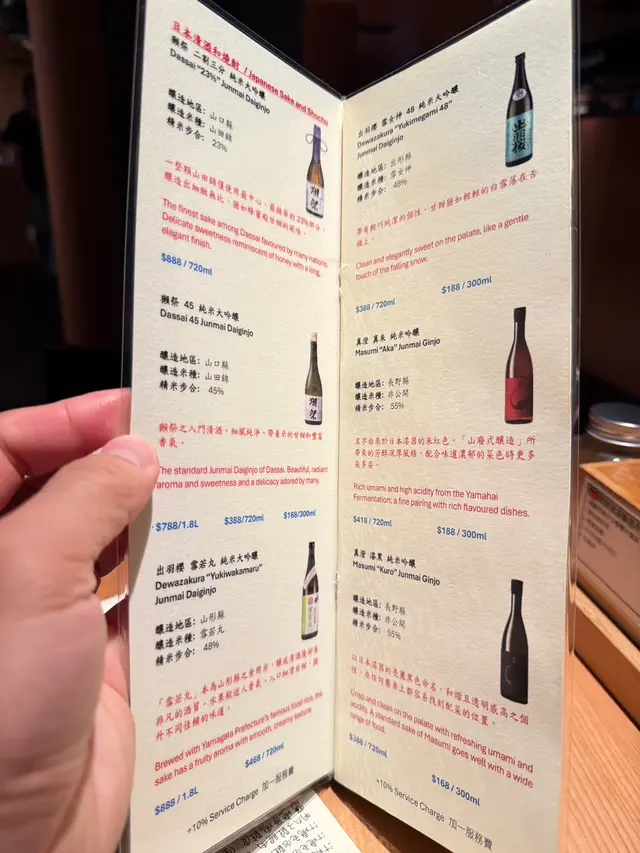 日本清酒和燒酎 / Japanese Sake and Shochu
獺祭 二割三分 純米大吟釀
Dassai "23%" Junmai Daiginjo
釀造地區: 山口縣
釀造米種: 山田錦
精米步合: 23%
一整顆山田錦僅使用最中心,最精華的23%部分,
釀造出細緻無比,猶如蜂蜜般甘甜的風味。
The finest sake among Dassai favoured by many nations.
Delicate sweetness reminiscent of honey with a long,
elegant finish.
$888 / 720ml
獺祭 45 純米大吟釀
Dassai 45 Junmai Daiginjo
釀造地區: 山口縣
釀造米種: 山田錦
精米步合: 45%
獺祭之入門清酒,細膩純淨,帶着米的甘甜和豐富
香氣。
The standard Junmai Daiginjo of Dassai. Beautiful, radiant
aroma and sweetness and a delicacy adored by many.
$788/1.8L $388/720ml $168/300ml
出羽櫻 雪若丸 純米大吟釀
Dewazakura "Yukiwakamaru"
Junmai Daiginjo
釀造地區: 山形縣
釀造米種: 雪若丸
精米步合: 48%
「雪若丸」本為山形縣之食用米,釀成清酒後卻有
非凡的酒質,水果般迷人香氣,入口細滑甘甜,提
升不同佳餚的味道。
Brewed with Yamagata Prefecture's famous food rice, the
sake has a fruity aroma with smooth, creamy texture.
$888 / 1.8L $468 / 720ml
+10% Service Charge 加一服務費
出羽櫻 雪女神 48 純米大吟釀
Dewazakura "Yukimegami 48"
Junmai Daiginjo
釀造地區: 山形縣
釀造米種: 雪女神
精米步合: 48%
帶有輕巧純潔的個性,甘甜猶如輕輕的白雪落在舌
頭上。
Clean and elegantly sweet on the palate, like a gentle
touch of the falling snow.
$388 / 720ml $188 / 300ml
真澄 真朱 純米吟釀
Masumi "Aka" Junmai Ginjo
釀造地區: 長野縣
釀造米種: 非公開
精米步合: 55%
名字由來於日本漆器的朱紅色。「山廢式釀造」所
帶來的芳醇深厚風格,配合味道濃郁的菜色時更多
采多姿。
Rich umami and high acidity from the Yamahai
Fermentation; a fine pairing with rich flavoured dishes.
$418 / 720ml $188 / 300ml
真澄 漆黑 純米吟釀
Masumi "Kuro" Junmai Ginjo
釀造地區: 長野縣
釀造米種: 非公開
精米步合: 55%
以日本漆器的亮麗黑色命名,和諧且透明感高之個
性,在任何餐桌上都容易找到配菜的位置。
Crisp and clean on the palate with refreshing umami and
acidity. A standard sake of Masumi goes well with a wide
range of food.
$388 / 720ml $168 / 300ml
+10% Service Charge 加一服務費